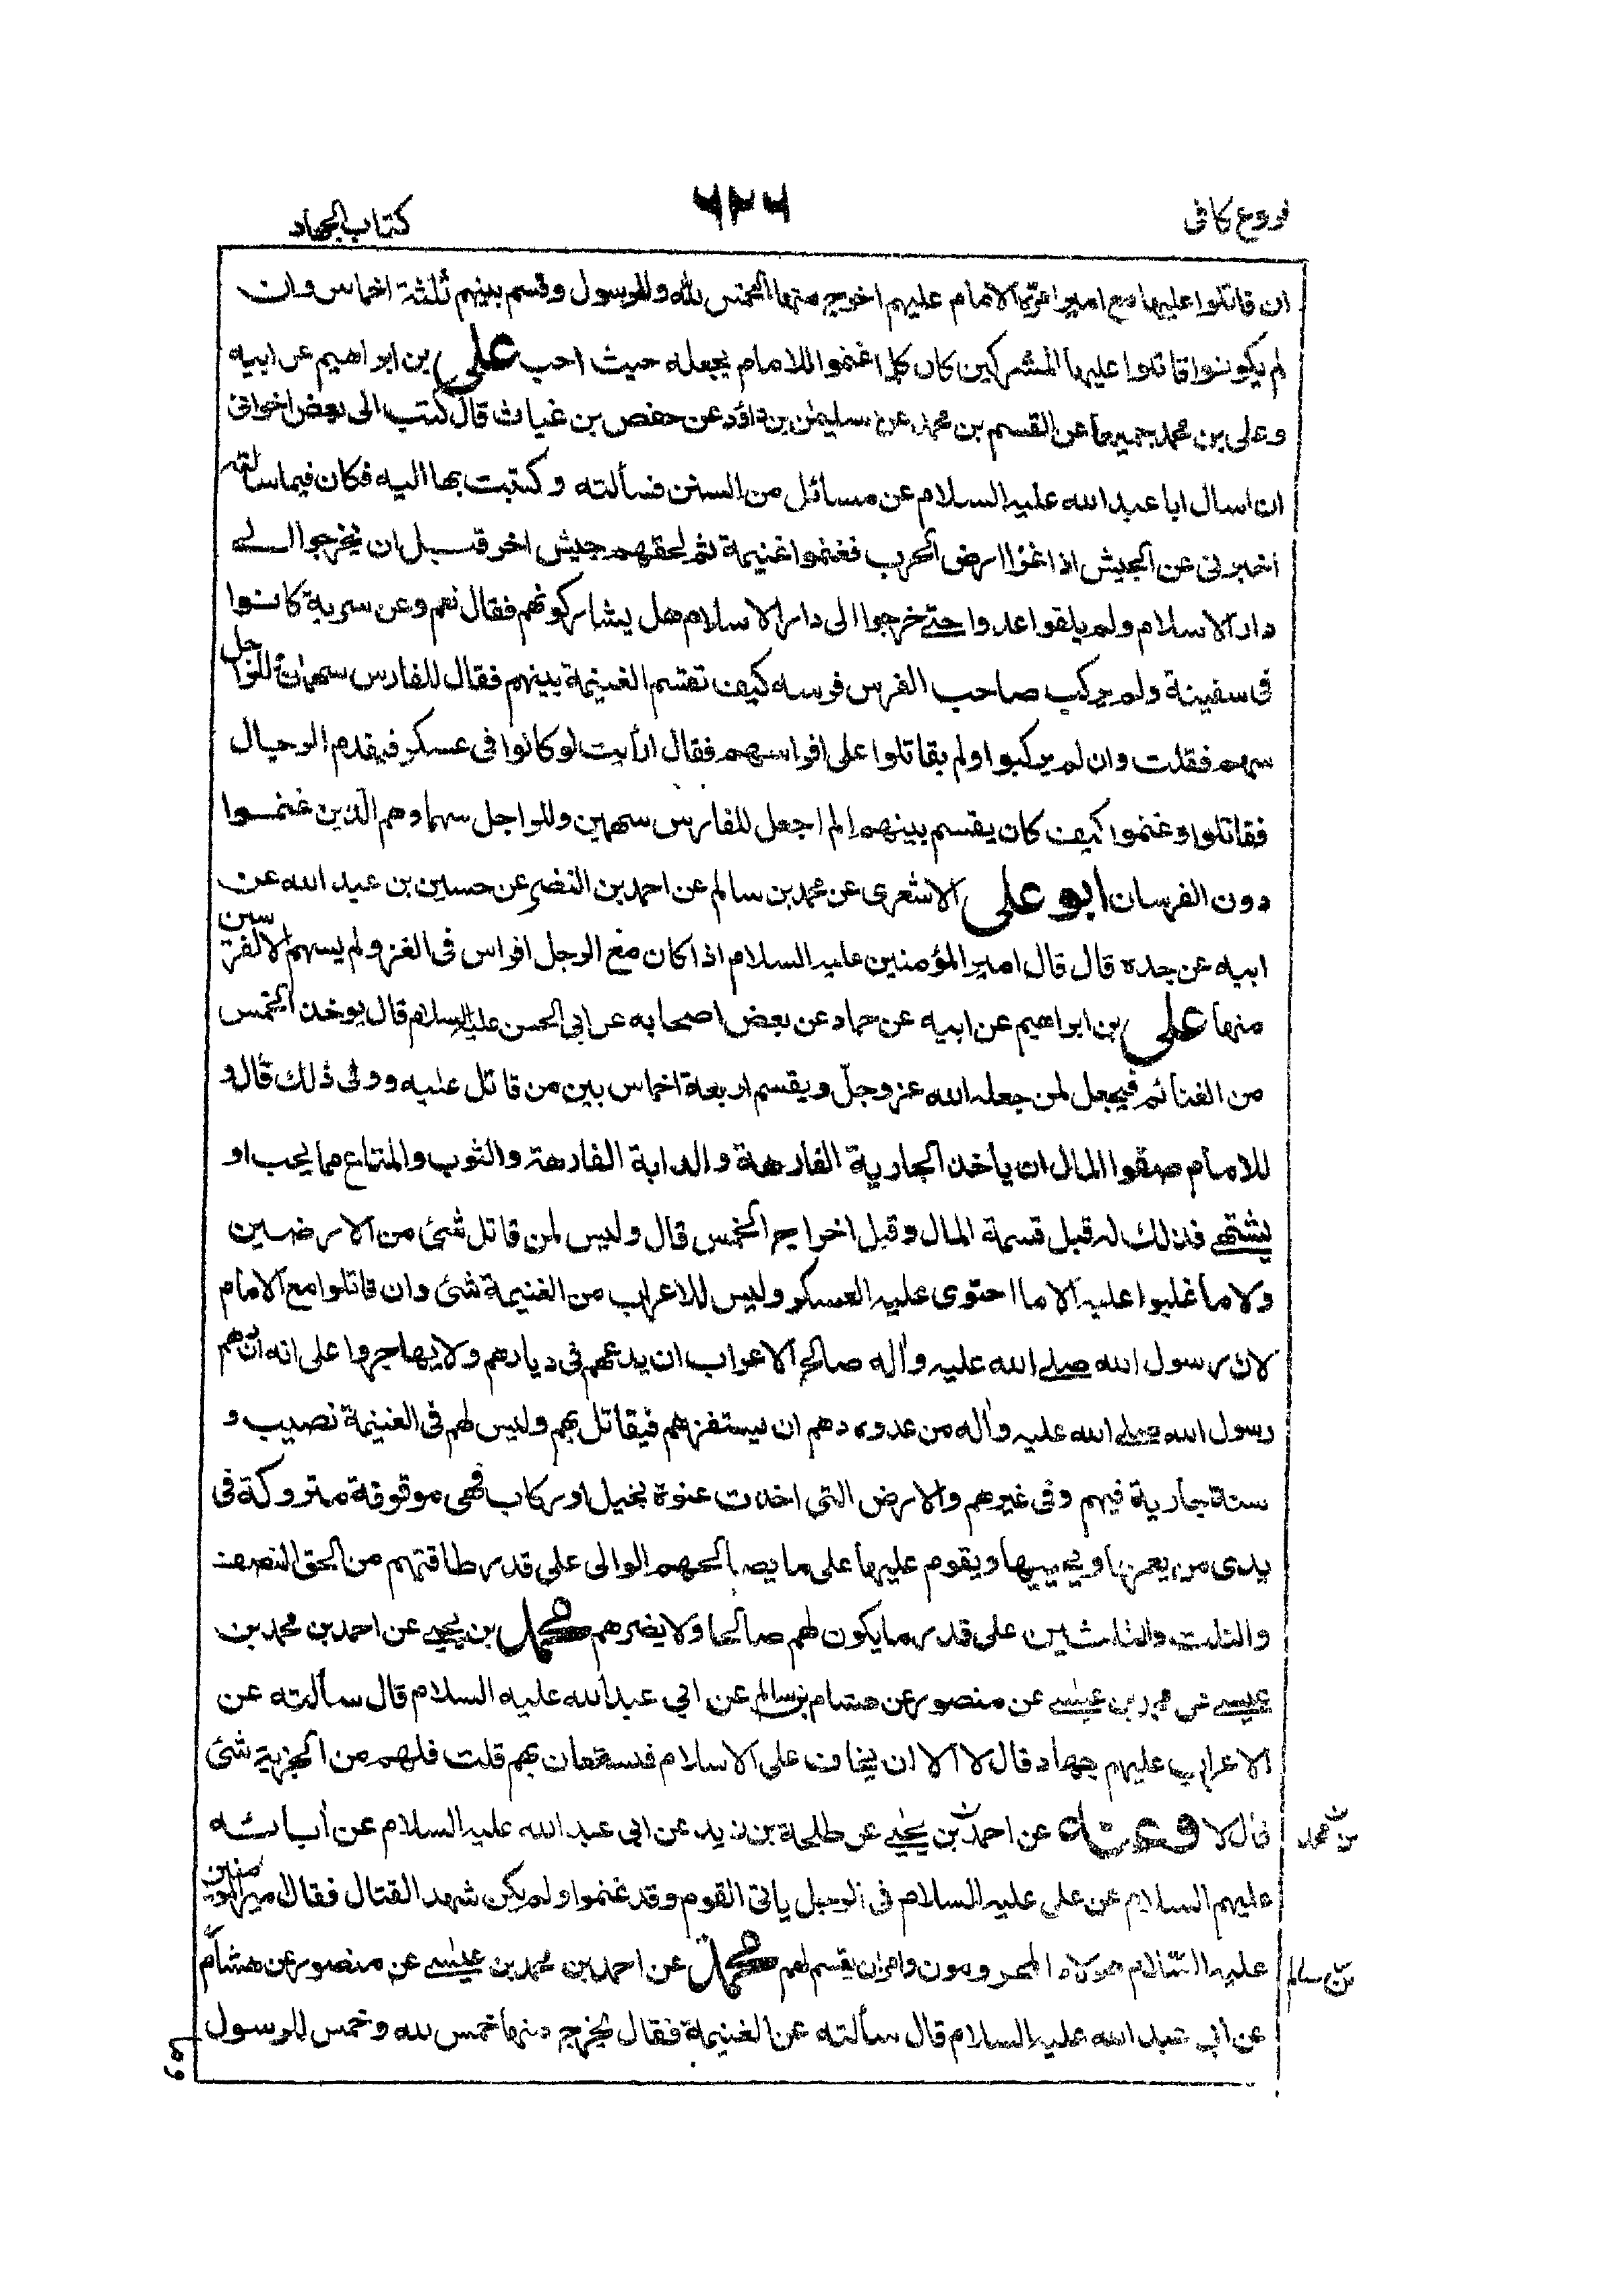 فروع كافى
٦٢٦
كتاب الجهاد
ان قاتلوا عليها مع امير امّره الامام عليهم اخرج منها الخمس لله وللرسول وقسم بينهم ثلثة اخماس وان
لم يكونوا قاتلوا عليها المشركين كان كلما غنموا للامام يجعله حيث احب على بن ابراهيم عن ابيه
وعلى بن محمد جميعا عن القسم بن محمد عن سليمن بن داؤد عن حفص بن غياث قال كتب الى بعض اخوانى
ان اسال ابا عبد الله عليه السلام عن مسائل من السنن فسألته وكتبت بها اليه فكان فيما سالته
اخبرنى عن الجيش اذا غزا ارض الحرب فغنموا غنيمة ثم لحقهم جيش اخر قبل ان يخرجوا الى
دار الاسلام ولم يلقوا عدوا حتى خرجوا الى دار الاسلام هل يشاركونهم فقال نعم وعن سرية كانوا
فى سفينة ولم يركب صاحب الفرس فرسه كيف تقسم الغنيمة بينهم فقال للفارس سهمان وللراجل
سهم فقلت وان لم يركبوا ولم يقاتلوا على افراسهم فقال ارأيت لو كانوا فى عسكر فيقدم الرجال
فقاتلوا وغنموا كيف كان يقسم بينهم الم اجعل للفارس سهمين وللراجل سهما وهم الذين غنموا
دون الفرسان ابو على الاشعرى عن محمد بن سالم عن احمد بن النضر عن حسين بن عبد الله عن
ابيه عن جده قال قال امير المؤمنين عليه السلام اذا كان مع الرجل افراس فى الغزو لم يسهم الا لفرسين
منها على بن ابراهيم عن ابيه عن حماد عن بعض اصحابه عن ابى الحسن عليه السلام قال يوخذ الخمس
من الغنائم فيجعل لمن جعله الله عز وجلّ ويقسم اربعة اخماس بين من قاتل عليه وولى ذلك قال و
للامام صفوا المال ان ياخذ الجارية الفارهة والدابة الفارهة والثوب والمتاع مما يحب او
يشتهى فذلك له قبل قسمة المال وقبل اخراج الخمس قال وليس لمن قاتل شئ من الارضين
ولا ما غلبوا عليه الا ما احتوى عليه العسكر وليس للاعراب من الغنيمة شئ وان قاتلوا مع الامام
لان رسول الله صلى الله عليه وآله صالح الاعراب ان يدعهم فى ديارهم ولا يهاجروا على انه ان دهم
رسول الله صلى الله عليه وآله من عدوه دهم ان يستفزهم فيقاتل بهم وليس لهم فى الغنيمة نصيب و
سنة جارية فيهم وفى غيرهم والارض التى اخذت عنوة بخيل او ركاب فهى موقوفة متروكة فى
يدى من يعمرها ويحييها ويقوم عليها على ما يصالحهم الوالى على قدر طاقتهم من الحق النصف
والثلث والثلثين على قدر ما يكون لهم صالحا ولا يضرهم محمد بن يحيى عن احمد بن محمد بن
عيسى عن محمد بن عيسى عن منصور عن هشام بن سالم عن ابى عبد الله عليه السلام قال سألته عن
الاعراب عليهم جهاد قال لا الا ان يخاف على الاسلام فيستعان بهم قلت فلهم من الجزية شئ
قال لا وعنه عن احمد بن يحيى عن طلحة بن زيد عن ابى عبد الله عليه السلام عن آبائه
بن محمد
عليهم السلام عن على عليه السلام فى الرجل ياتى القوم وقد غنموا ولم يكن شهد القتال فقال امير المؤمنين
عليه السّلام هؤلاء المحرومون وامر ان يقسم لهم محمد عن احمد بن محمد بن عيسى عن منصور عن هشام
بن سالم
عن ابى عبد الله عليه السلام قال سألته عن الغنيمة فقال يخرج منها خمس لله وخمس للرسول